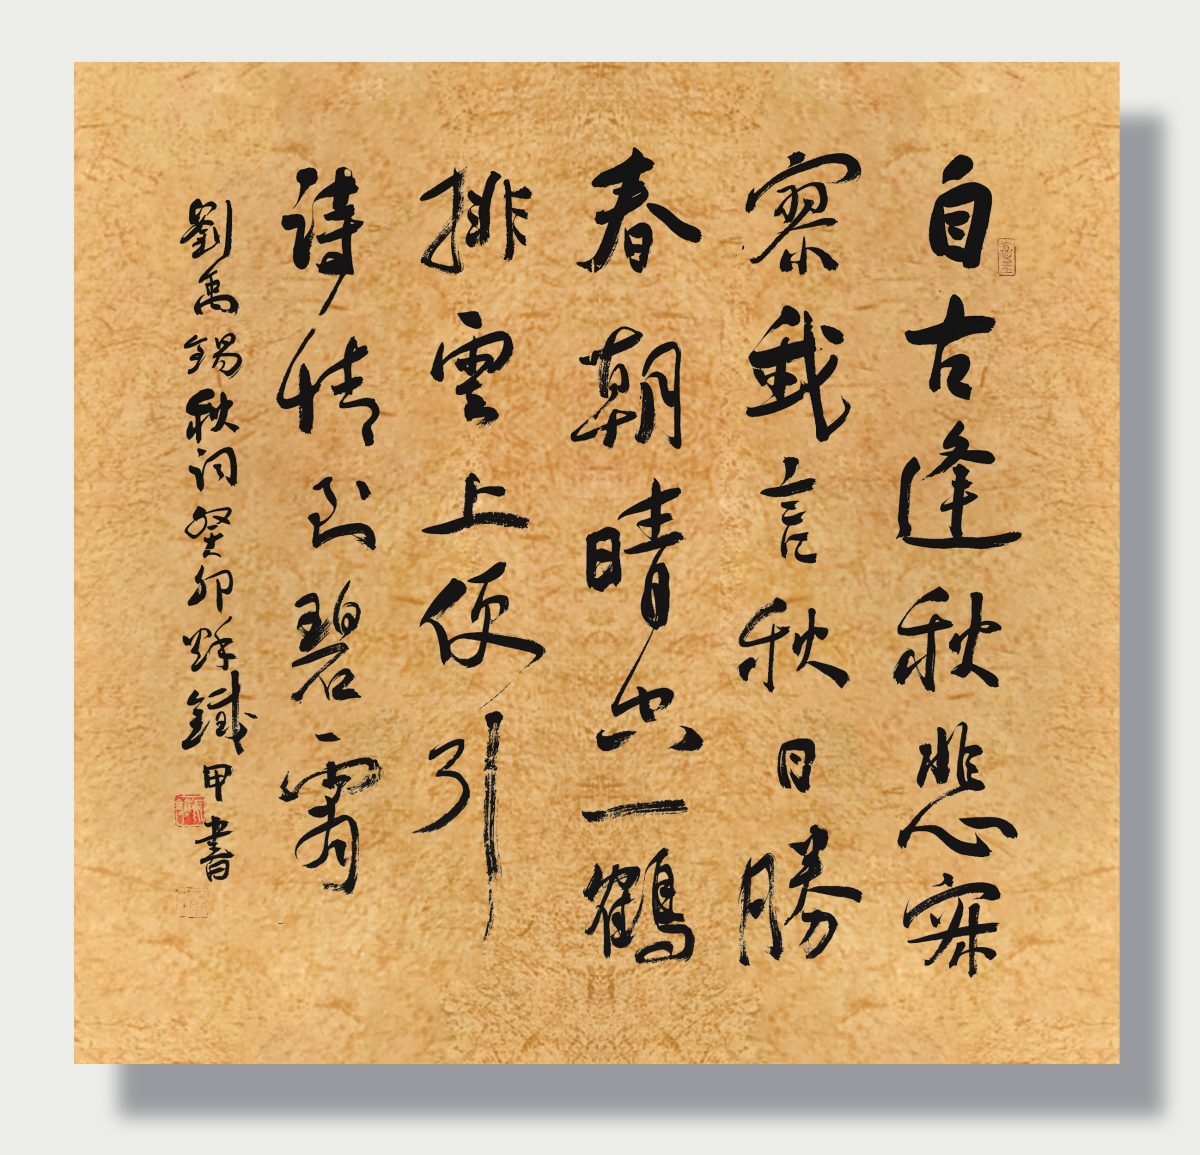 自古逢秋悲寂
寥我言秋日勝
春朝晴空一鶴
排雲上便引
詩情到碧霄
劉禹錫秋詞癸卯鐵甲書